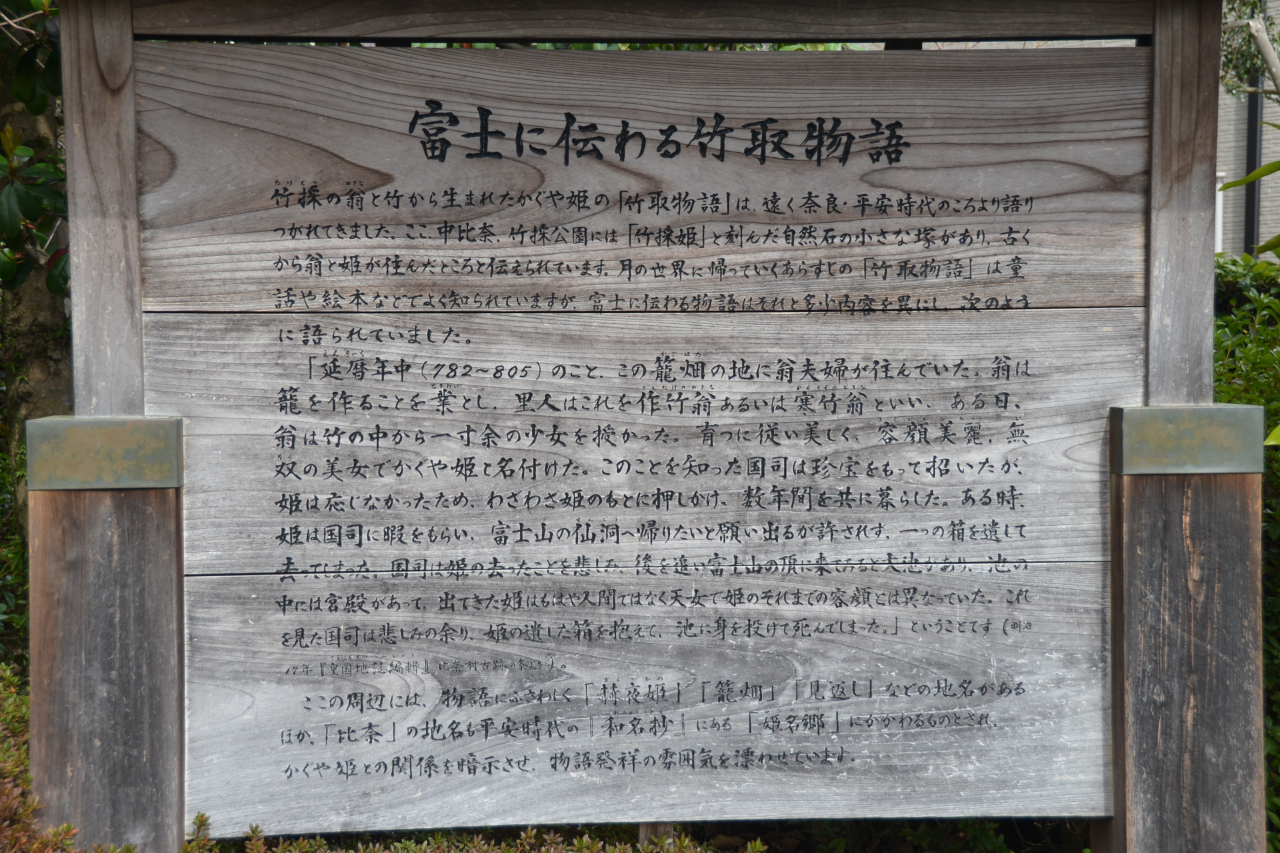 富士に伝わる竹取物語
竹採の翁と竹から生まれたかぐや姫の「竹取物語」は、遠く奈良・平安時代のころより語り
つがれてきました。ここ、中比奈、竹採公園には「竹採姫」と刻んだ自然石の小さな塚があり、古く
から翁と姫が住んだところと伝えられています。月の世界に帰っていくあらすじの「竹取物語」は童
話や絵本などでよく知られていますが、富士に伝わる物語はそれと多少内容を異にし、次のよう
に語られていました。
「延暦年中(782～805)のこと、この籠畑の地に翁夫婦が住んでいた。翁は
籠を作ることを業とし、里人はこれを作竹翁あるいは寒竹翁といい、ある日、
翁は竹の中から一寸余の少女を授かった。育つに従い美しく、容顔美麗、無
双の美女でかぐや姫と名付けた。このことを知った国司は珍宝をもって招いたが、
姫は応じなかったため、わざわざ姫のもとに押しかけ、数年間を共に暮らした。ある時、
姫は国司に暇をもらい、富士山の仙洞へ帰りたいと願い出るが許されず、一つの箱を遺して
去ってしまった。国司は姫の去ったことを悲しみ、後を追い富士山の頂に来てみると大池があり、池の
中には宮殿があって、出てきた姫はもはや人間ではなく天女で姫のそれまでの容顔とは異なっていた。これ
を見た国司は悲しみの余り、姫の遺した箱を抱えて、池に身を投げて死んでしまった。」ということです(明治
17年『皇国地誌編輯』比奈村古跡の条より)。
ここの周辺には、物語にふさわしく「赫夜姫」「籠畑」「見返し」などの地名がある
ほか、「比奈」の地名も平安時代の『和名抄』にある「姫名郷」にかかわるものとされ、
かぐや姫との関係を暗示させ、物語発祥の雰囲気を漂わせています。